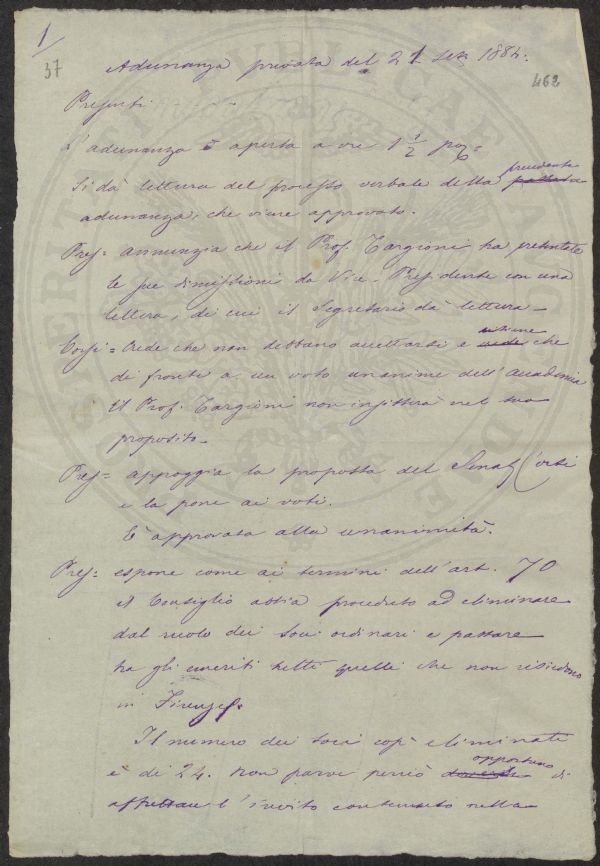 1/
37
462
Adunanza privata del 21 Sett 1884.
Presenti
L'adunanza è aperta a ore 1 1/2 pom=
Si dà lettura del processo verbale della precedente passata
adunanza, che viene approvato.
Pres= annunzia che il Prof. Targioni ha presentate
le sue dimissioni da Vice-Presidente con una
lettera, di cui il Segretario dà lettura_
Corsi= Crede che non debbano accettarsi e ritiene crede che
di fronte a un voto unanime dell'Accademia
il Prof. Targioni non insisterà nel suo
proposito_
Pres= appoggia la proposta del Senat Corsi
e la pone ai voti.
È approvata alla unanimità.
Pres= espone come ai termini dell'art. 70
il Consiglio abbia proceduto ad eliminare
dal ruolo dei Soci ordinari e passare
tra gli emeriti tutti quelli che non risiedono
in Firenze.
Il numero dei soci così eliminati
è di 24. Non parve perciò opportuno di
affrettare l'invito contenuto nella